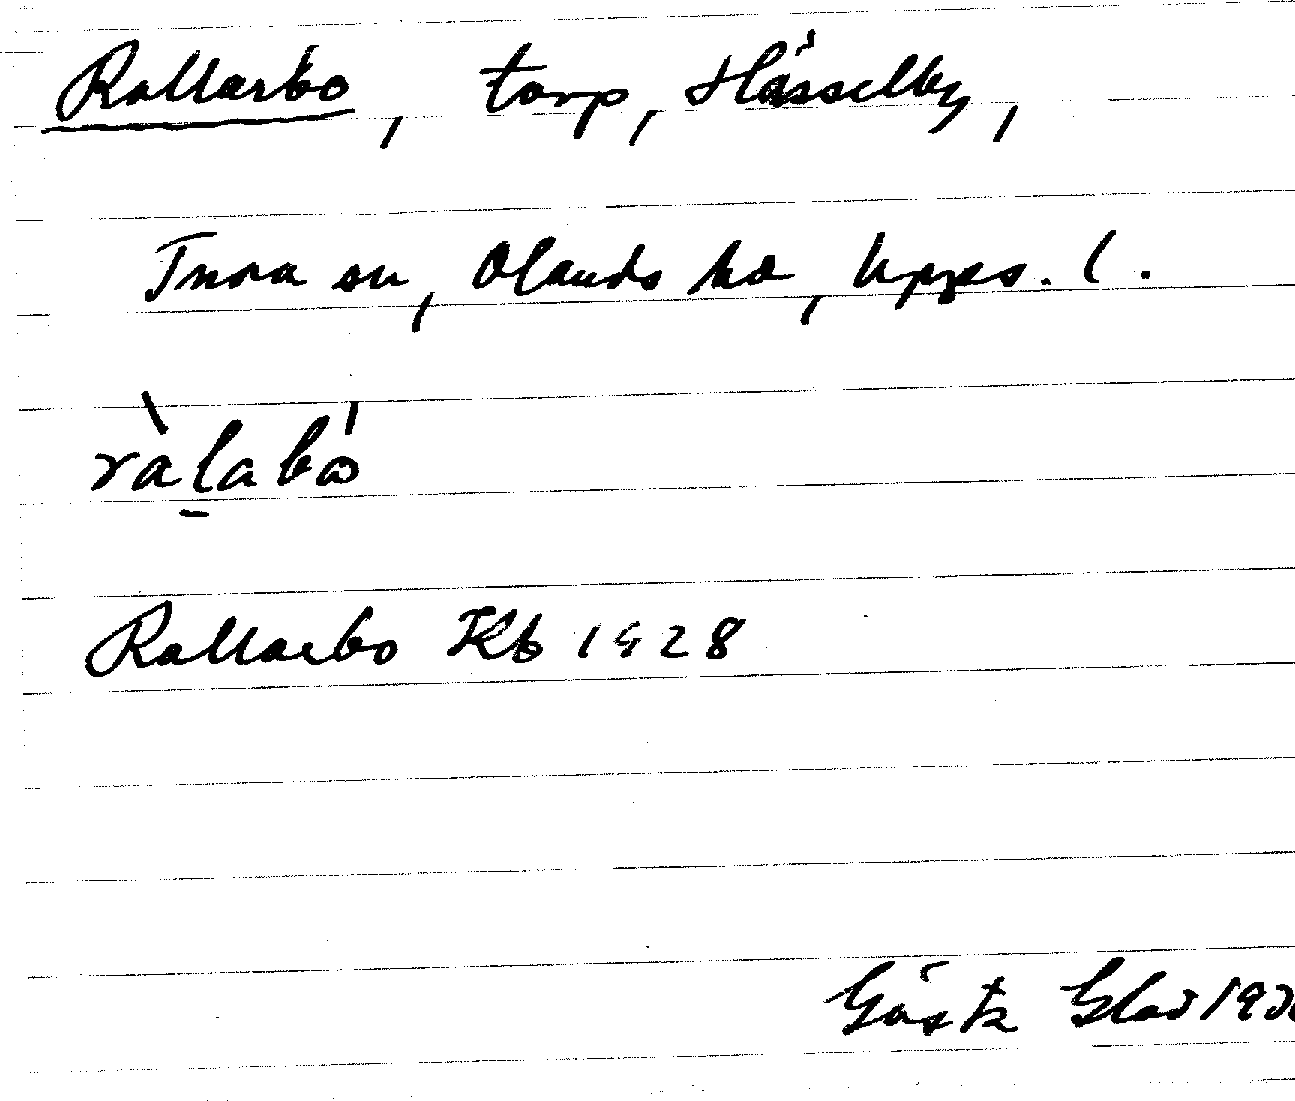 Rallarbo, torp, Hässelby,
Tuora sn, Olands hd, Upps. l.
ràlabó
Rallarbo Kb 1928
Gösta Glad